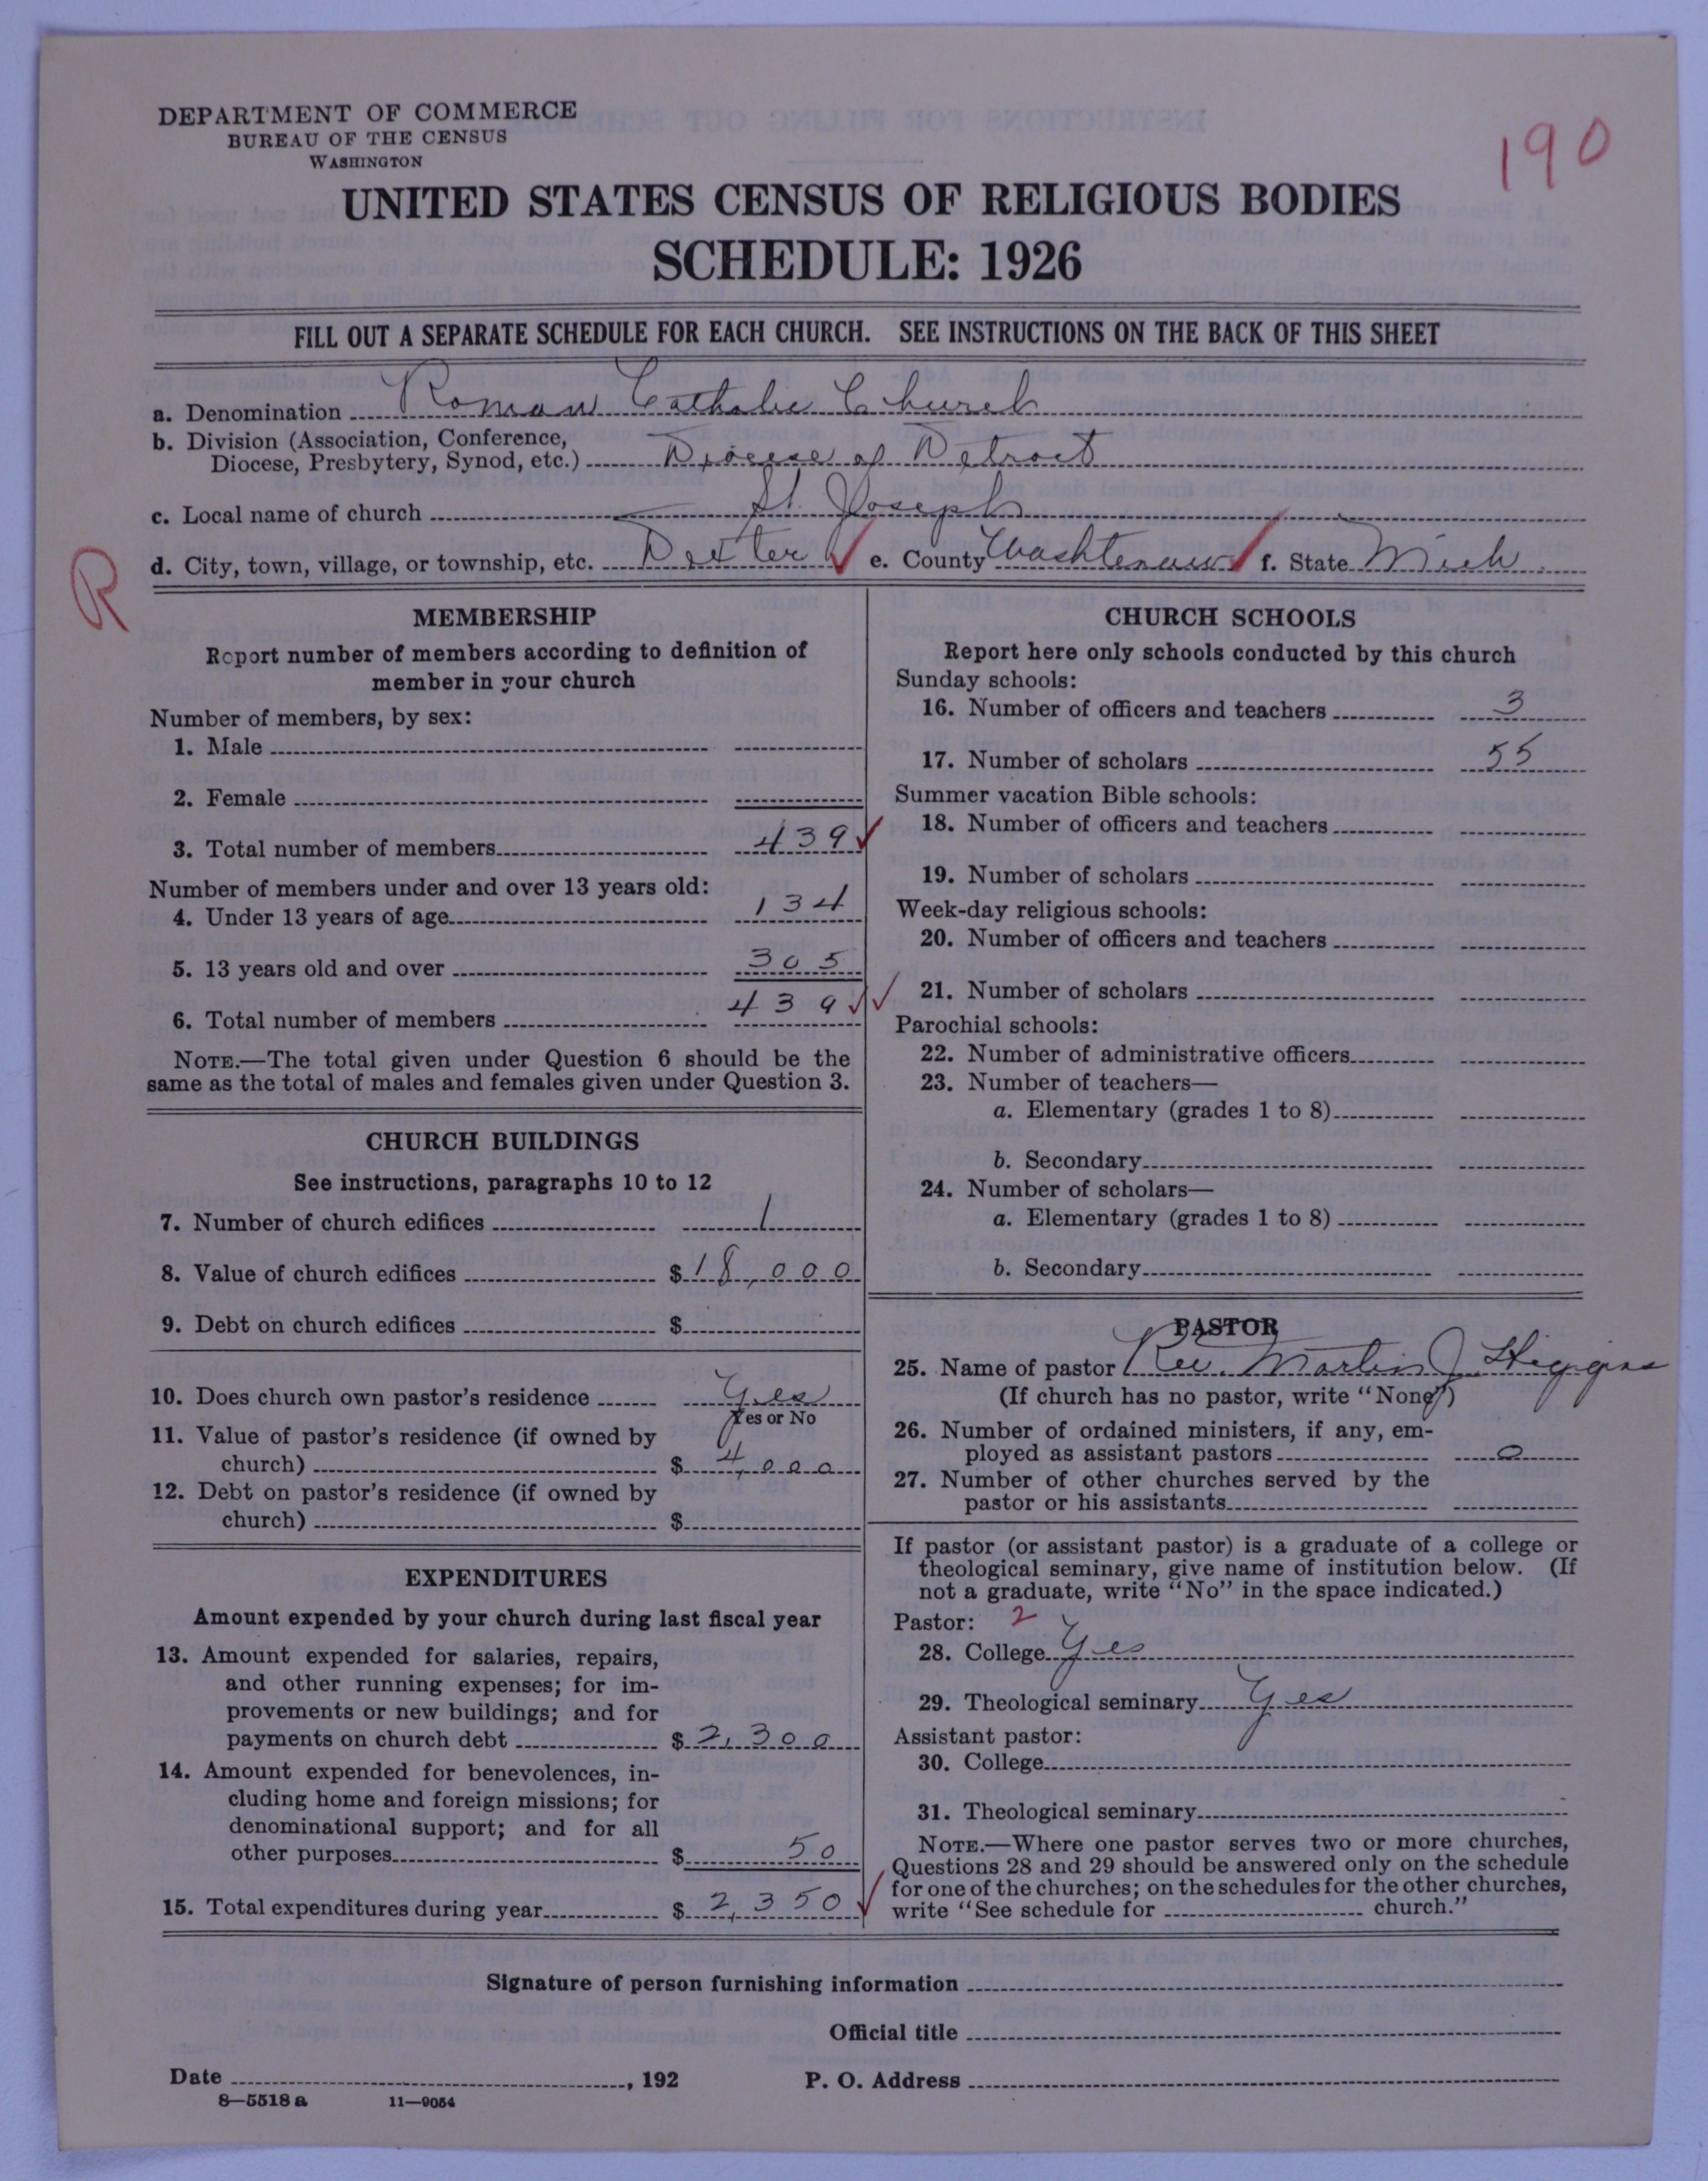 DEPARTMENT OF COMMERCE
BUREAU OF THE CENSUS
WASHINGTON
190
UNITED STATES CENSUS OF RELIGIOUS BODIES
SCHEDULE: 1926
FILL OUT A SEPARATE SCHEDULE FOR EACH CHURCH. SEE INSTRUCTIONS ON THE BACK OF THIS SHEET
a. Denomination Roman Catholic Church
b. Division (Association, Conference,
Diocese, Presbytery, Synod, etc.) Diocese of Detroit
c. Local name of church St. Joseph
R
d. City, town, village, or township, etc. Dexter ✓ e. County Washtenaw ✓ f. State Mich.
MEMBERSHIP
Report number of members according to definition of
member in your church
Number of members, by sex:
1. Male
2. Female
3. Total number of members 439 ✓
Number of members under and over 13 years old:
4. Under 13 years of age 134
5. 13 years old and over 305
6. Total number of members 439 ✓ ✓
NOTE.—The total given under Question 6 should be the
same as the total of males and females given under Question 3.
CHURCH BUILDINGS
See instructions, paragraphs 10 to 12
7. Number of church edifices 1
8. Value of church edifices $ 18,000
9. Debt on church edifices $
10. Does church own pastor's residence Yes
Yes or No
11. Value of pastor's residence (if owned by
church) $ 4,000
12. Debt on pastor's residence (if owned by
church) $
EXPENDITURES
Amount expended by your church during last fiscal year
13. Amount expended for salaries, repairs,
and other running expenses; for im-
provements or new buildings; and for
payments on church debt $ 2,300
14. Amount expended for benevolences, in-
cluding home and foreign missions; for
denominational support; and for all
other purposes $ 50
15. Total expenditures during year $ 2,350 ✓
CHURCH SCHOOLS
Report here only schools conducted by this church
Sunday schools:
16. Number of officers and teachers 3
17. Number of scholars 55
Summer vacation Bible schools:
18. Number of officers and teachers
19. Number of scholars
Week-day religious schools:
20. Number of officers and teachers
21. Number of scholars
Parochial schools:
22. Number of administrative officers
23. Number of teachers—
a. Elementary (grades 1 to 8)
b. Secondary
24. Number of scholars—
a. Elementary (grades 1 to 8)
b. Secondary
PASTOR
25. Name of pastor Rev. Martin J. Higgins
(If church has no pastor, write "None")
26. Number of ordained ministers, if any, em-
ployed as assistant pastors 0
27. Number of other churches served by the
pastor or his assistants
If pastor (or assistant pastor) is a graduate of a college or
theological seminary, give name of institution below. (If
not a graduate, write "No" in the space indicated.)
Pastor: 2
28. College Yes
29. Theological seminary Yes
Assistant pastor:
30. College
31. Theological seminary
NOTE.—Where one pastor serves two or more churches,
Questions 28 and 29 should be answered only on the schedule
for one of the churches; on the schedules for the other churches,
write "See schedule for church."
Signature of person furnishing information
Official title
Date , 192 P. O. Address
8—5518 a 11—9054